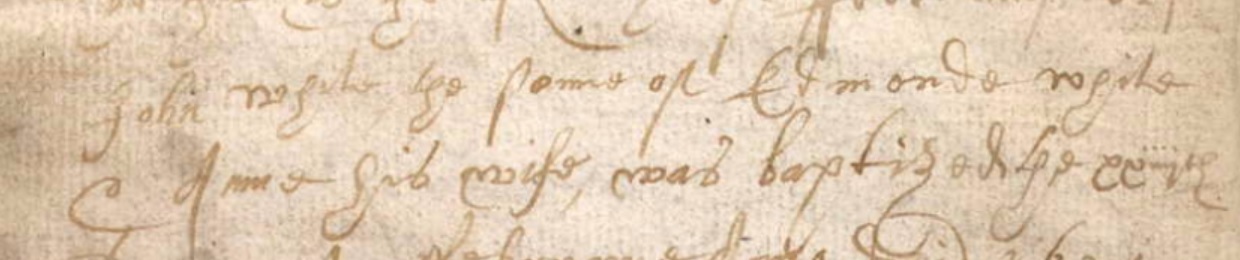 John white the sonne of Edmonde white
& Anne his wife, was baptized the xxiiijth